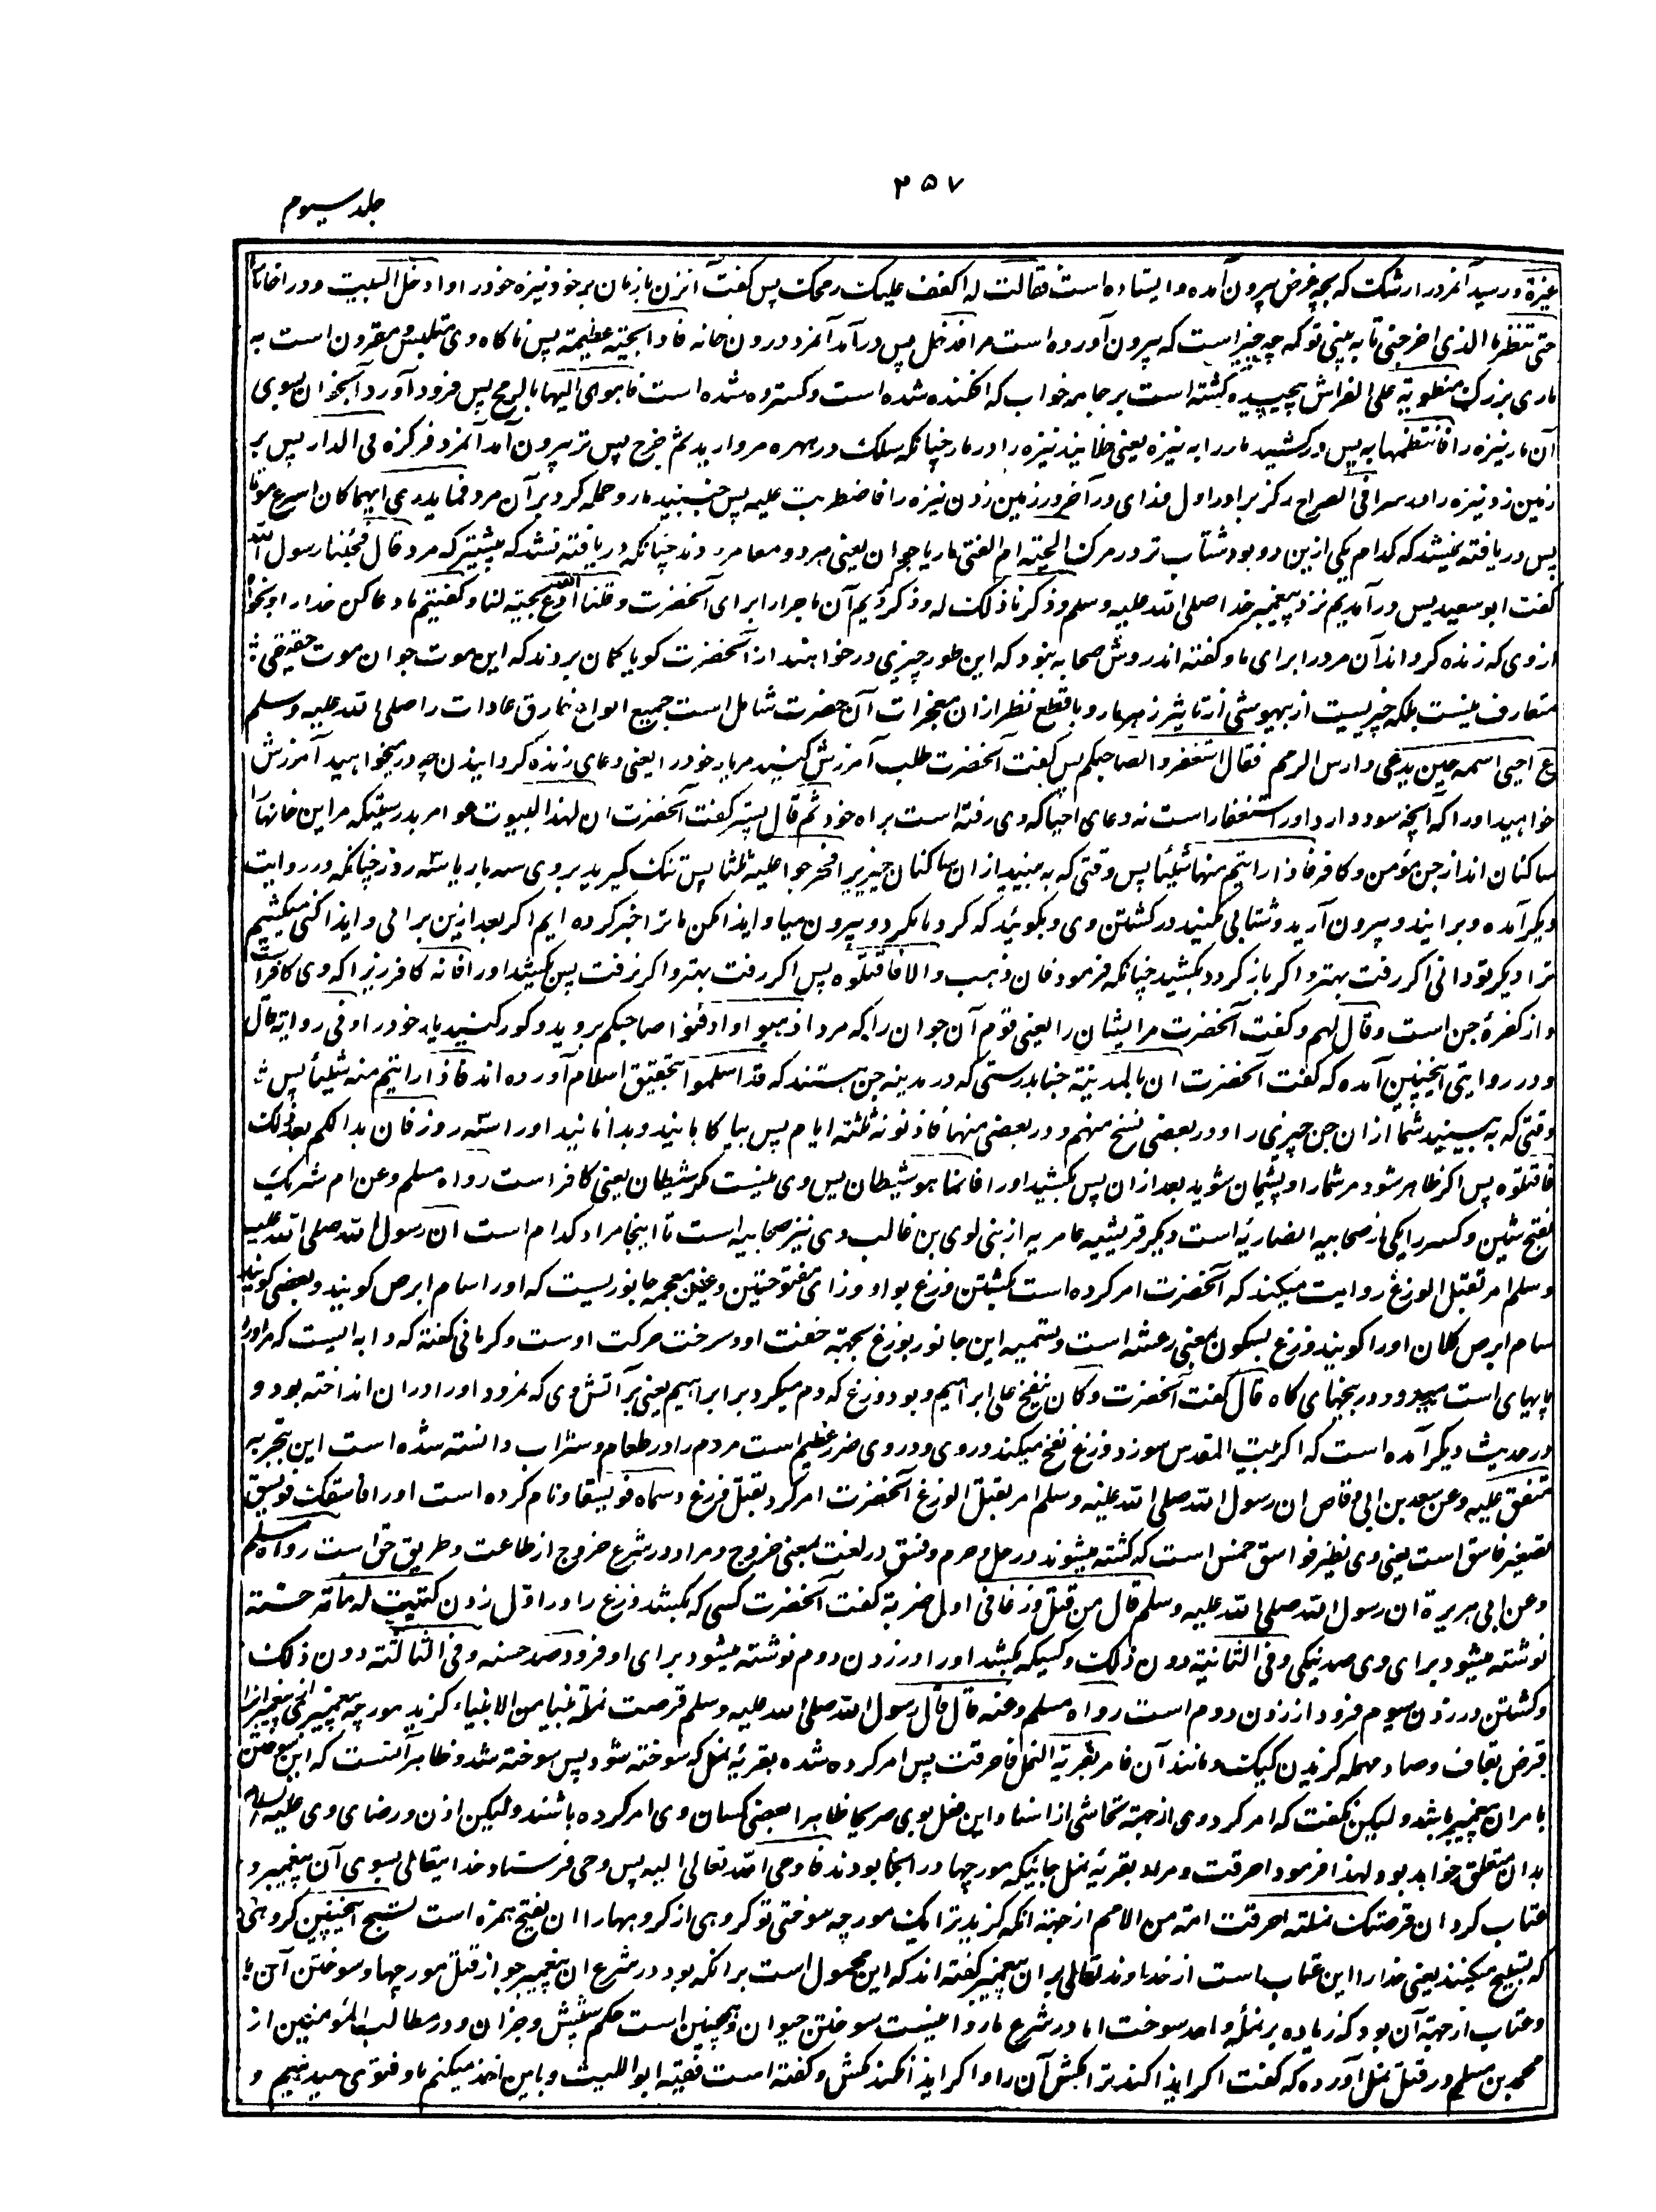 ۴۵۷
جلد سیوم
غیرة و رسید آنمرد را رشک که بچه غرض بیرون آمده و ایستاده است فقالت له اکفف علیک رمحک پس گفت آنزن باز مان بر خود نیزه خود را و ادخل البیت و در آ خانه را
حتی تنظر ما الذی اخرجنی تا به بینی تو که چه چیز است که بیرون آورده است مرا فدخل پس در آمد آنمرد درون خانه فاذا بحیة عظیمة پس ناگاه وی متلبس و مقرون است به
ماری بزرگ منطویة علی الفراش پیچیده گشته است بر جامه خواب که افکنده شده است و گسترده شده است فاهوی الیها بالرمح پس فرود آورد آنجوان بسوی
آن مار نیزه را فانتظمها به پس در کشید مار را به نیزه یعنی خلانید نیزه را در مار چنانکه سلک در مهره مروارید ثم خرج پس تر بیرون آمد آنمرد فرکزه فی الدار پس بر
زمین زد نیزه را در سرا فی الصراح رکز برا در اول و زای در آخر در زمین زدن نیزه را فاضطربت علیه پس جنبید مار و حمله کرد بر آن مرد فما یدری ایهما کان اسرع موتا
پس دریافته نمیشد که کدام یکی ازین دو بود شتاب تر در مرگ الحیة ام الفتی مار یا جوان یعنی هر دو معا مردند چنانکه دریافته نشد که پیشتر که مرد قال فجئنا رسول الله
گفت ابو سعید پس در آمدیم نزد پیغمبر خدا صلی الله علیه وسلم و ذکرنا ذلک له و ذکر کردیم آن ماجرا را برای آنحضرت و قلنا ادع الله یحییه لنا و گفتیم ما دعا کن خدا را و بخواه
از وی که زنده گرداند آن مرد را برای ما و گفته اند روش صحابه نبود که این طور چیزی درخواهند از آنحضرت گویا گمان بردند که این موت جوان موت حقیقی
متعارف نیست بلکه چیزیست از بیهوشی از تاثیر زهر مار و با قطع نظر از ان معجزات آن حضرت شامل است جمیع انواع خارق عادات را صلی الله علیه وسلم
ع احیی اسمه حین یدعی دارس الرمم فقال استغفروا لصاحبکم پس گفت آنحضرت طلب آمرزش کنید مر یار خود را یعنی دعای زنده گردانیدن چه در میخواهید آمرزش
خواهید او را که آنچه سود دارد او را استغفار است نه دعای احیا که وی رفته است براه خود ثم قال پستر گفت آنحضرت ان لهذه البیوت عوامر بدرستیکه مر این خانها را
ساکنان اند از جن مؤمن و کافر فاذا رایتم منها شیئا پس وقتی که به بینید از ان ساکنان چیزیرا فحرجوا علیه ثلثا پس تنگ گیرید بروی سه بار یا سه روز چنانکه در روایت
دیگر آمده و برانید و بیرون آرید و شتابی مکنید در کشتن وی و بگوئید که گرد ما مگرد و بیرون میا و ایذا مکن ما ترا خبر کرده ایم اگر بعد ازین بر آئی و ایذا کنی میکشیم
ترا دیگر تو دانی اگر رفت بهتر و اگر باز گردد بکشید چنانکه فرمود فان ذهب و الا فاقتلوه پس اگر رفت بهتر و اگر نرفت پس بکشید او را فانه کافر زیرا که وی کافر است
و از کفرهٔ جن است و قال لهم و گفت آنحضرت مر ایشان را یعنی قوم آن جوان را که مرد اذهبوا و ادفنوا صاحبکم بروید و گور کنید یار خود را و فی روایة قال
و در روایتی اینچنین آمده که گفت آنحضرت ان بالمدینة جنا بدرستی که در مدینه جن هستند که قد اسلموا بتحقیق اسلام آورده اند فاذا رایتم منه شیئا پس
وقتی که به بینید شما از ان جن چیزی را و در بعضی نسخ منهم و در بعضی منها فاذنوه ثلثة ایام پس بیاگاهانید و بدانانید او را سه روز فان بدا لکم بعد ذلک
فاقتلوه پس اگر ظاهر شود مر شما را و پشیمان شوید بعد ازان پس بکشید او را فانما هو شیطان پس وی نیست مگر شیطان یعنی کافر است رواه مسلم و عن ام شریک
بفتح شین و کسر را یکی از صحابیه انصاریه است و دیگر قریشیه عامریه از بنی لوی بن غالب و وی نیز صحابیه است تا اینجا مراد کدام است ان رسول الله صلی الله علیه
وسلم امر بقتل الوزغ روایت میکند که آنحضرت امر کرده است بکشتن وزغ بواو و زای مفتوحتین و غین معجمه جانوریست که او را سام ابرص گویند و بعضی گویند
سام ابرص کلان او را گویند وزغ بسکون بمعنی رعشه است و تسمیه این جانور بوزغ بجهة خفت او و سرعت حرکت اوست و کرمانی گفته که دابه ایست که مر او را
پایهای است میدود در بیخهای گاه قال گفت آنحضرت و کان ینفخ علی ابراهیم و بود وزغ که دم میکرد بر ابراهیم یعنی بر آتش وی که نمرود او را در ان انداخته بود و
در حدیث دیگر آمده است که اگر بیت المقدس سوزد وزغ نفخ میکند در وی و در وی ضرر عظیم است مردم را در طعام و شراب دانسته شده است این بتجربه
متفق علیه و عن سعد بن ابی وقاص ان رسول الله صلی الله علیه وسلم امر بقتل الوزغ آنحضرت امر کرد بقتل وزغ و سماه فویسقا و نام کرده است او را فاسقک فویسق
تصغیر فاسق است یعنی وی نظیر فواسق خمس است که کشته میشوند در حل و حرم و فسق در لغت بمعنی خروج و مراد در شرع خروج از طاعت و طریق حق است رواه مسلم
و عن ابی هریرة ان رسول الله صلی الله علیه وسلم قال من قتل وزغا فی اول ضربة گفت آنحضرت کسی که بکشد وزغ را در اوّل زدن کتبت له مائة حسنة
نوشته میشود برای وی صد نیکی و فی الثانیة دون ذلک و کسیکه بکشد او را در زدن دوم نوشته میشود برای او فرود صد حسنه و فی الثالثة دون ذلک
و کشتن در زدن سیوم فرود از زدن دوم است رواه مسلم و عنه قال قال رسول الله صلی الله علیه وسلم قرصت نملة نبیا من الانبیاء گزید مورچه پیغمبری از پیغمبران را
قرص بقاف و صاد مهمله گزیدن کیک و مانند آن فامر بقریة النمل فاحرقت پس امر کرده شده بقریهٔ نمل که سوخته شود پس سوخته شد و ظاهر آنست که این سوختن
بامر ان پیغمبر باشد و لیکن نگفت که امر کرد وی از جهة تحاشی از اسناد این فعل بوی صریحا ظاهرا بعضی کسان وی امر کرده باشند و لیکن اذن و رضای وی علیه السلام
بدان متعلق خواهد بود و لهذا فرمود احرقت و مراد بقریهٔ نمل جائیکه مورچها در آنجا بودند فاوحی الله تعالی الیه پس وحی فرستاد خدایتعالی بسوی آن پیغمبر و
عتاب کرد ان قرصتک نملة احرقت امة من الامم از جهة انکه گزید ترا یک مورچه سوختی تو گروهی از گروهها را ان بفتح همزه است تسبح اینچنین گروهی
که تسبیح میکنند یعنی خدا را این عتاب است از خداوند تعالی بر ان پیغمبر گفته اند که این محمول است بر انکه بود در شرع ان پیغمبر جواز قتل مورچها و سوختن آن ها
و عتاب از جهة آن بود که زیاده بر نمله واحد سوخت اما در شرع ما روا نیست سوختن حیوان و همچنین است حکم شپش و جز ان و در مطالب المؤمنین از
محمد بن مسلم در قتل نمل آورده که گفت اگر ایذا کند ترا بکش آن را و اگر ایذا نکند مکش و گفته است فقیه ابو اللیث و باین اخذ میکنم ما و فتوی میدهیم و